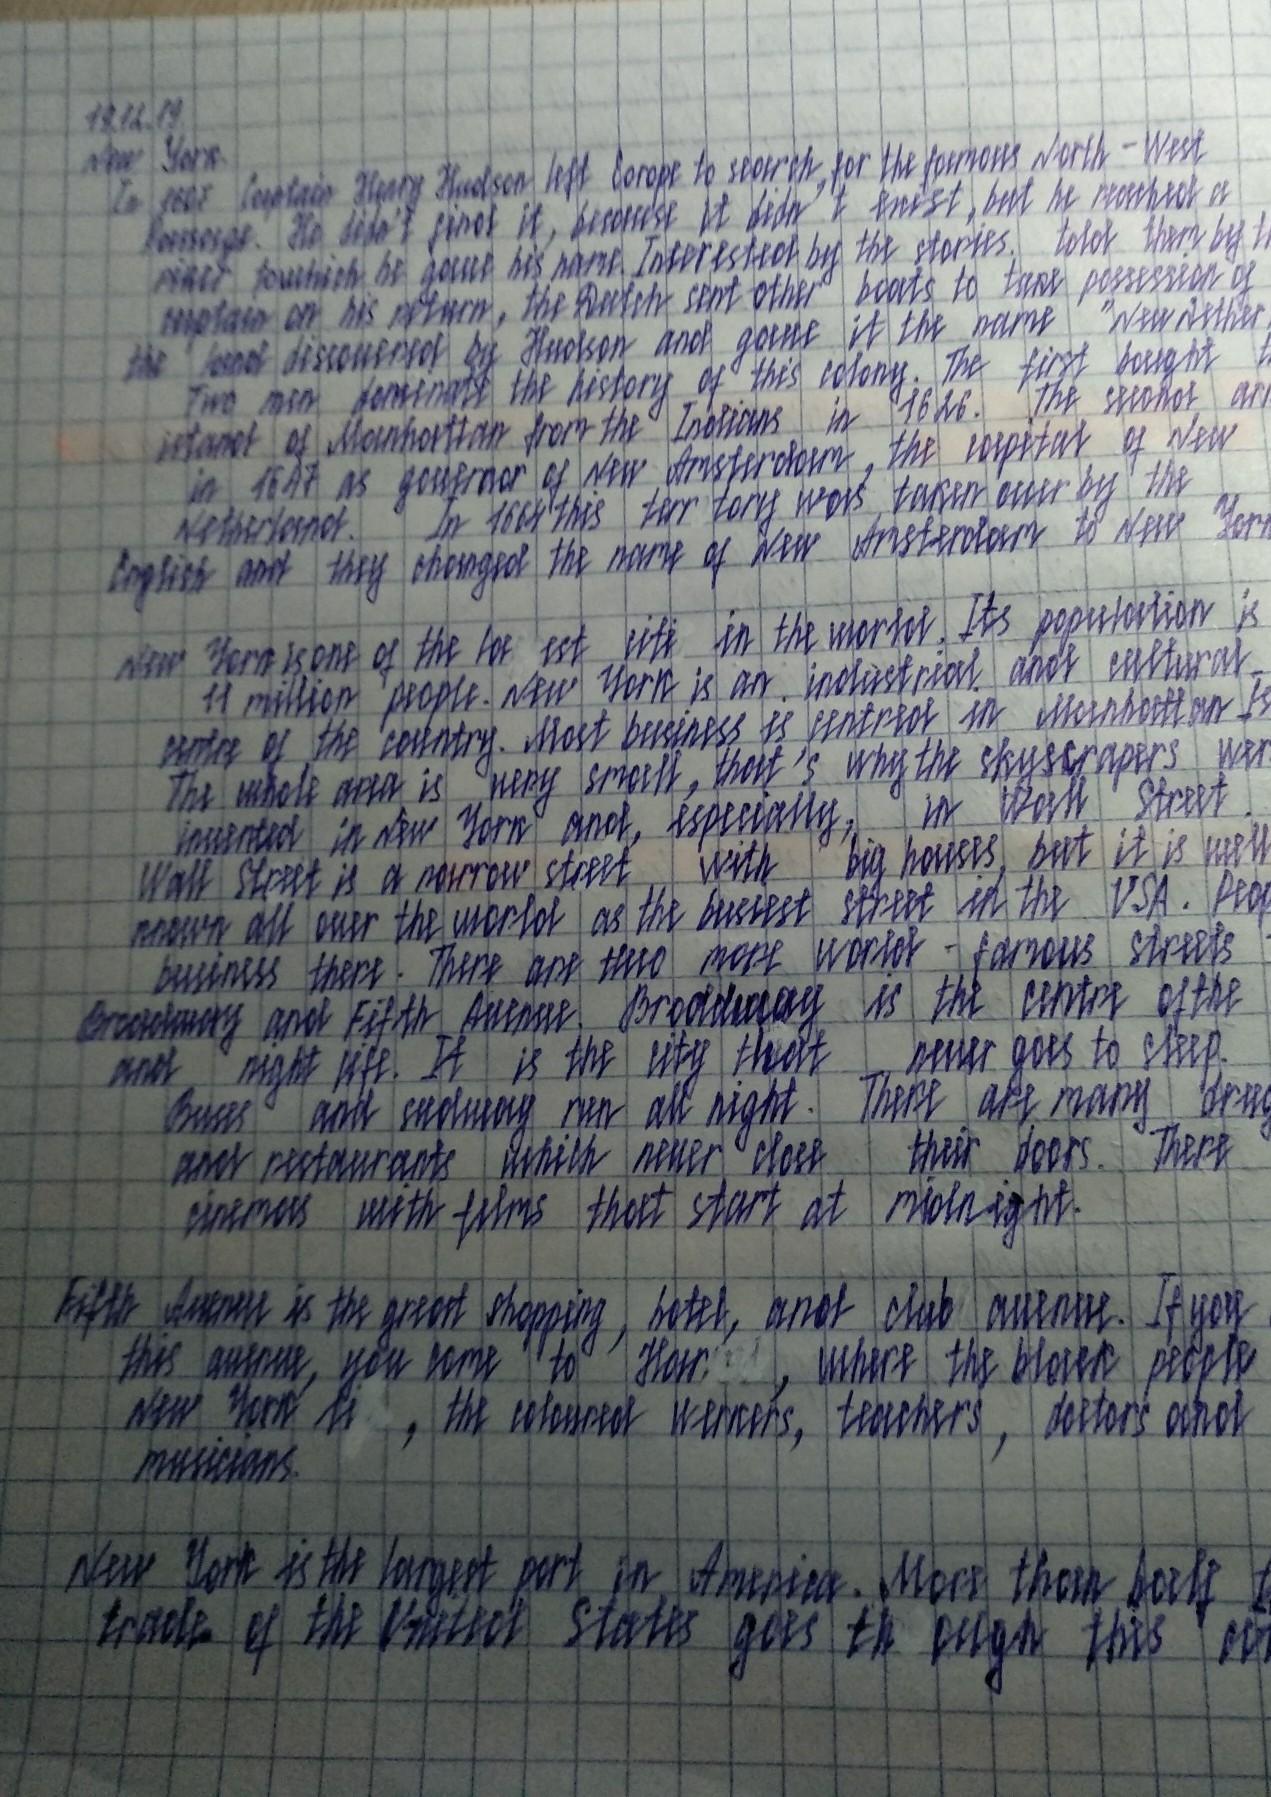 19.12.19
New York.
In 1607 Captain Henry Hudson left Europe to search for the famous North - West
Passage. He didn't find it, because it didn't exist, but he reached a
river to which he gave his name. Interested by the stories, told them by
captain on his return, the Dutch sent other boats to take possession of
the land discovered by Hudson and gave it the name "New Nether
Two men dominate the history of this colony. The first bought
island of Manhattan from the Indians in 1626. The second
in 1647 as governor of New Amsterdam, the capital of New
Netherland. In 1664 this terr tory was taken over by the
English and they changed the name of New Amsterdam to New York
New York is one of the la est citi in the world. Its population is
11 million people. New York is an industrial and cultural
centre of the country. Most business is centred in Manhattan Is
The whole area is very small, that's why the skyscrapers wer
invented in New York and, especially, in Wall Street.
Wall Street is a narrow street with big houses, but it is well
known all over the world as the busiest street in the USA. Peop
business there. There are two more world - famous streets -
Broadway and Fifth Avenue. Broadway is the centre of the
and night life. It is the city that never goes to sleep.
Buses and sudway run all night. There are many drug
and restaurants which never close their doors. There
cinemas with films that start at midnight.
Fifth Avenue is the great shopping, hotel, and club avenue. If you
this avenue, you come to Har , where the black people
New York li , the coloured workers, teachers, doctors and
musicians.
New York is the largest port in America. More than half
trade of the United States goes th ough this